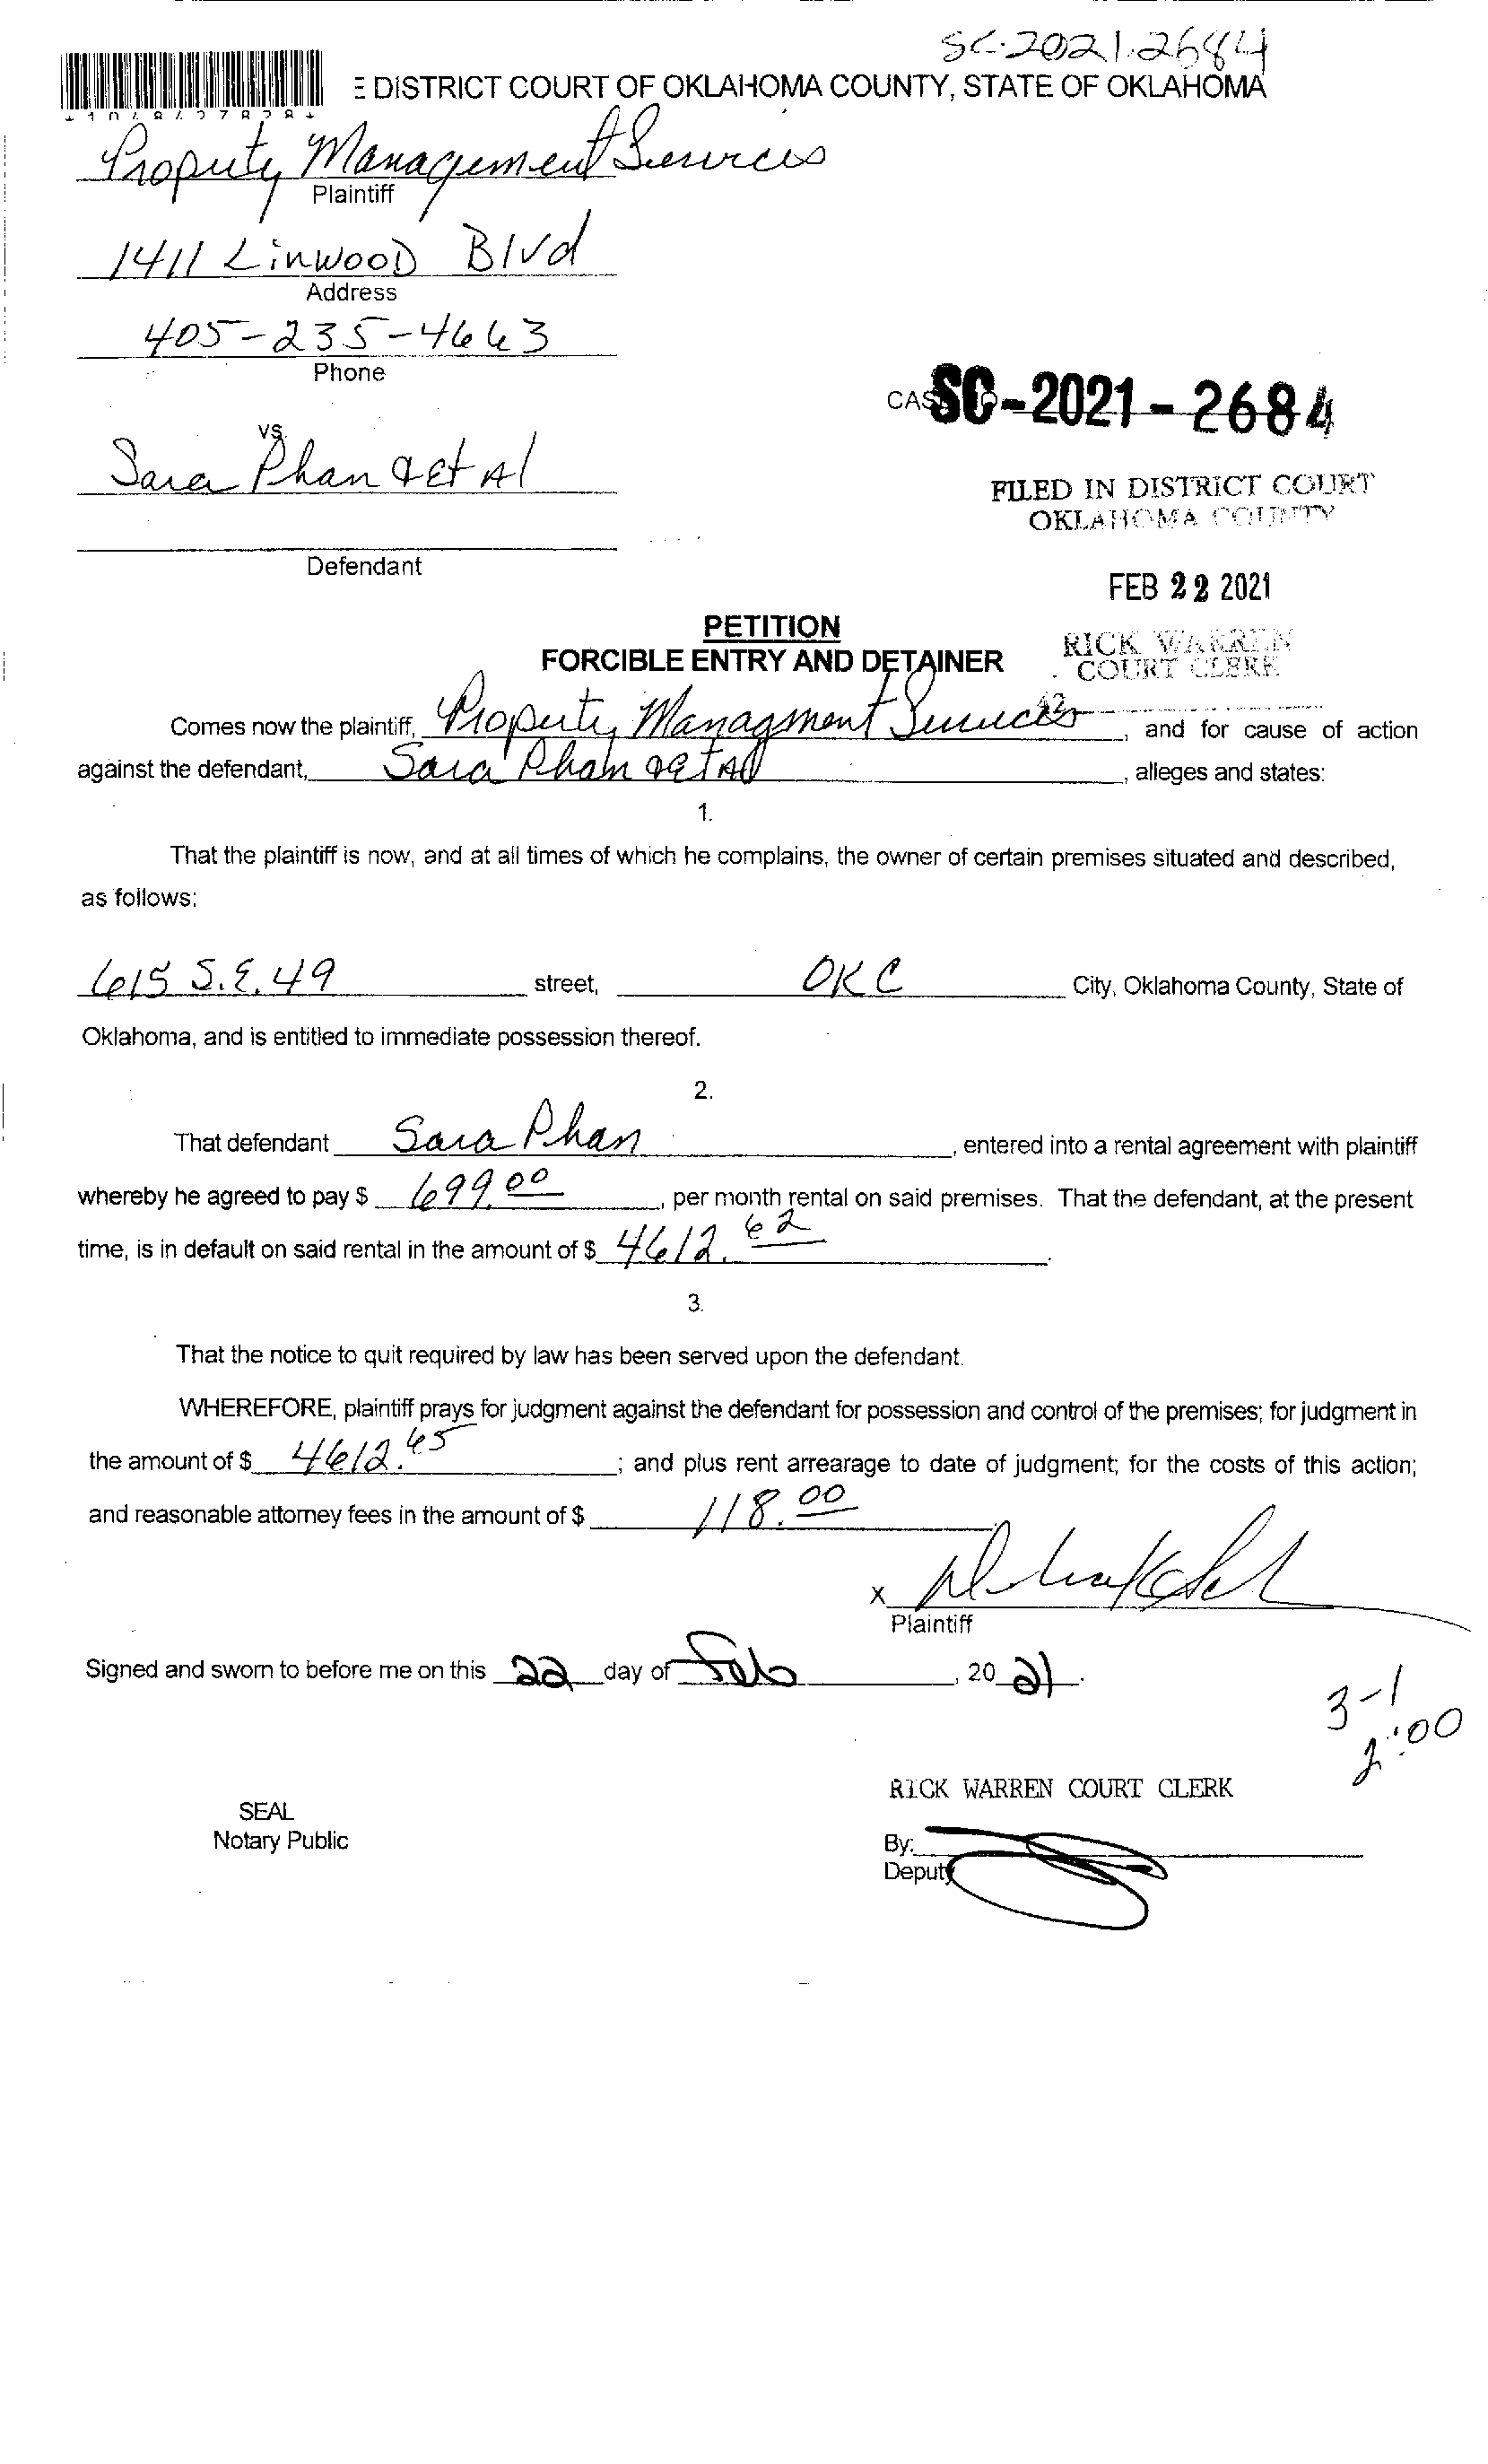 SC-2021-2684
DISTRICT COURT OF OKLAHOMA COUNTY, STATE OF OKLAHOMA
Property Management Services
Plaintiff
1411 Linwood Blvd
Address
405-235-4663
Phone
SC-2021-2684
vs.
Sara Phan & et Al
FILED IN DISTRICT COURT
OKLAHOMA COUNTY
Defendant
FEB 22 2021
PETITION
RICK WARREN
FORCIBLE ENTRY AND DETAINER
COURT CLERK
42
Comes now the plaintiff, Property Managment Services, and for cause of action
against the defendant, Sara Phan & et Al, alleges and states:
1.
That the plaintiff is now, and at all times of which he complains, the owner of certain premises situated and described,
as follows:
615 S.E. 49 street, OKC City, Oklahoma County, State of
Oklahoma, and is entitled to immediate possession thereof.
2.
That defendant Sara Phan, entered into a rental agreement with plaintiff
whereby he agreed to pay $ 699.00, per month rental on said premises. That the defendant, at the present
time, is in default on said rental in the amount of $ 4612.62.
3.
That the notice to quit required by law has been served upon the defendant.
WHEREFORE, plaintiff prays for judgment against the defendant for possession and control of the premises; for judgment in
the amount of $ 4612.65; and plus rent arrearage to date of judgment; for the costs of this action;
and reasonable attorney fees in the amount of $ 118.00
X
Plaintiff
Signed and sworn to before me on this 22 day of Feb, 20 21.
3-1
2:00
RICK WARREN COURT CLERK
SEAL
Notary Public
By:
Deputy